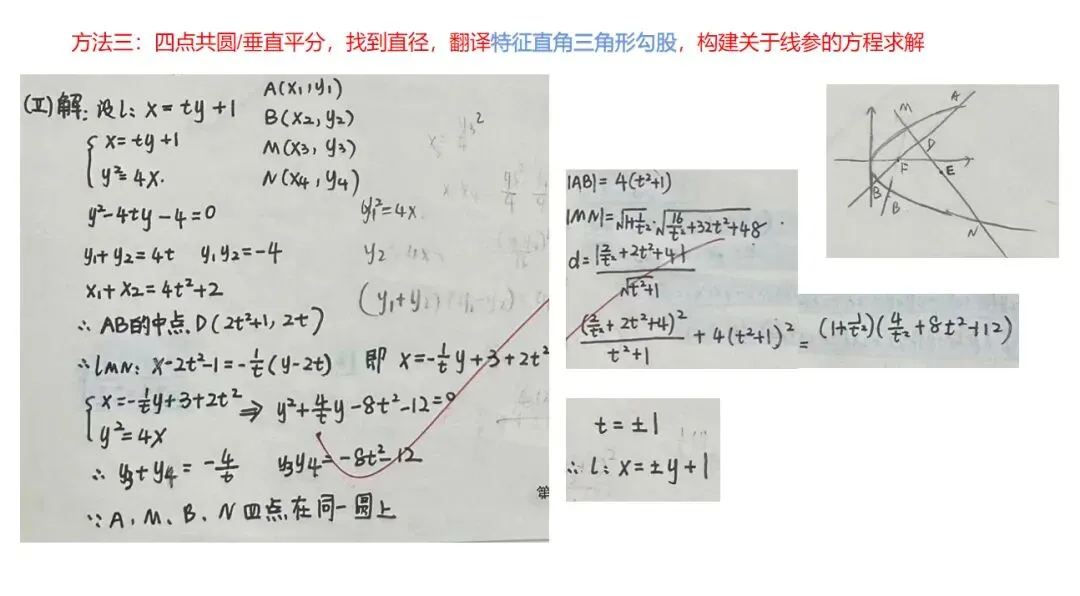 方法三：四点共圆/垂直平分，找到直径，翻译特征直角三角形勾股，构建关于线参的方程求解
(Ⅱ)解: 设l: x = ty + 1
A(x₁, y₁)
B(x₂, y₂)
M(x₃, y₃)
N(x₄, y₄)
{ x = ty + 1
y² = 4x.
y² - 4ty - 4 = 0
y₁ + y₂ = 4t   y₁y₂ = -4
x₁ + x₂ = 4t² + 2
∴ AB的中点D(2t²+1, 2t)
∴ lMN: x - 2t² - 1 = -1/t (y - 2t)   即 x = -1/t y + 3 + 2t²
{ x = -1/t y + 3 + 2t²
y² = 4x
⇒ y² + 4/t y - 8t² - 12 = 0
∴ y₃ + y₄ = -4/t   y₃y₄ = -8t² - 12
∵ A、M、B、N四点在同一圆上
y₁² = 4x
y₂
(y₁ + y₂)
第
|AB| = 4(t²+1)
|MN| = √(1+1/t²)·√(16/t² + 32t² + 48)
d = |2/t² + 2t² + 4| / √(t²+1)
(2/t² + 2t² + 4)² / (t²+1) + 4(t²+1)² = (1+1/t²)(4/t² + 8t² + 12)
t = ±1
∴ l: x = ±y + 1
M
A
D
F
E
B
B
N